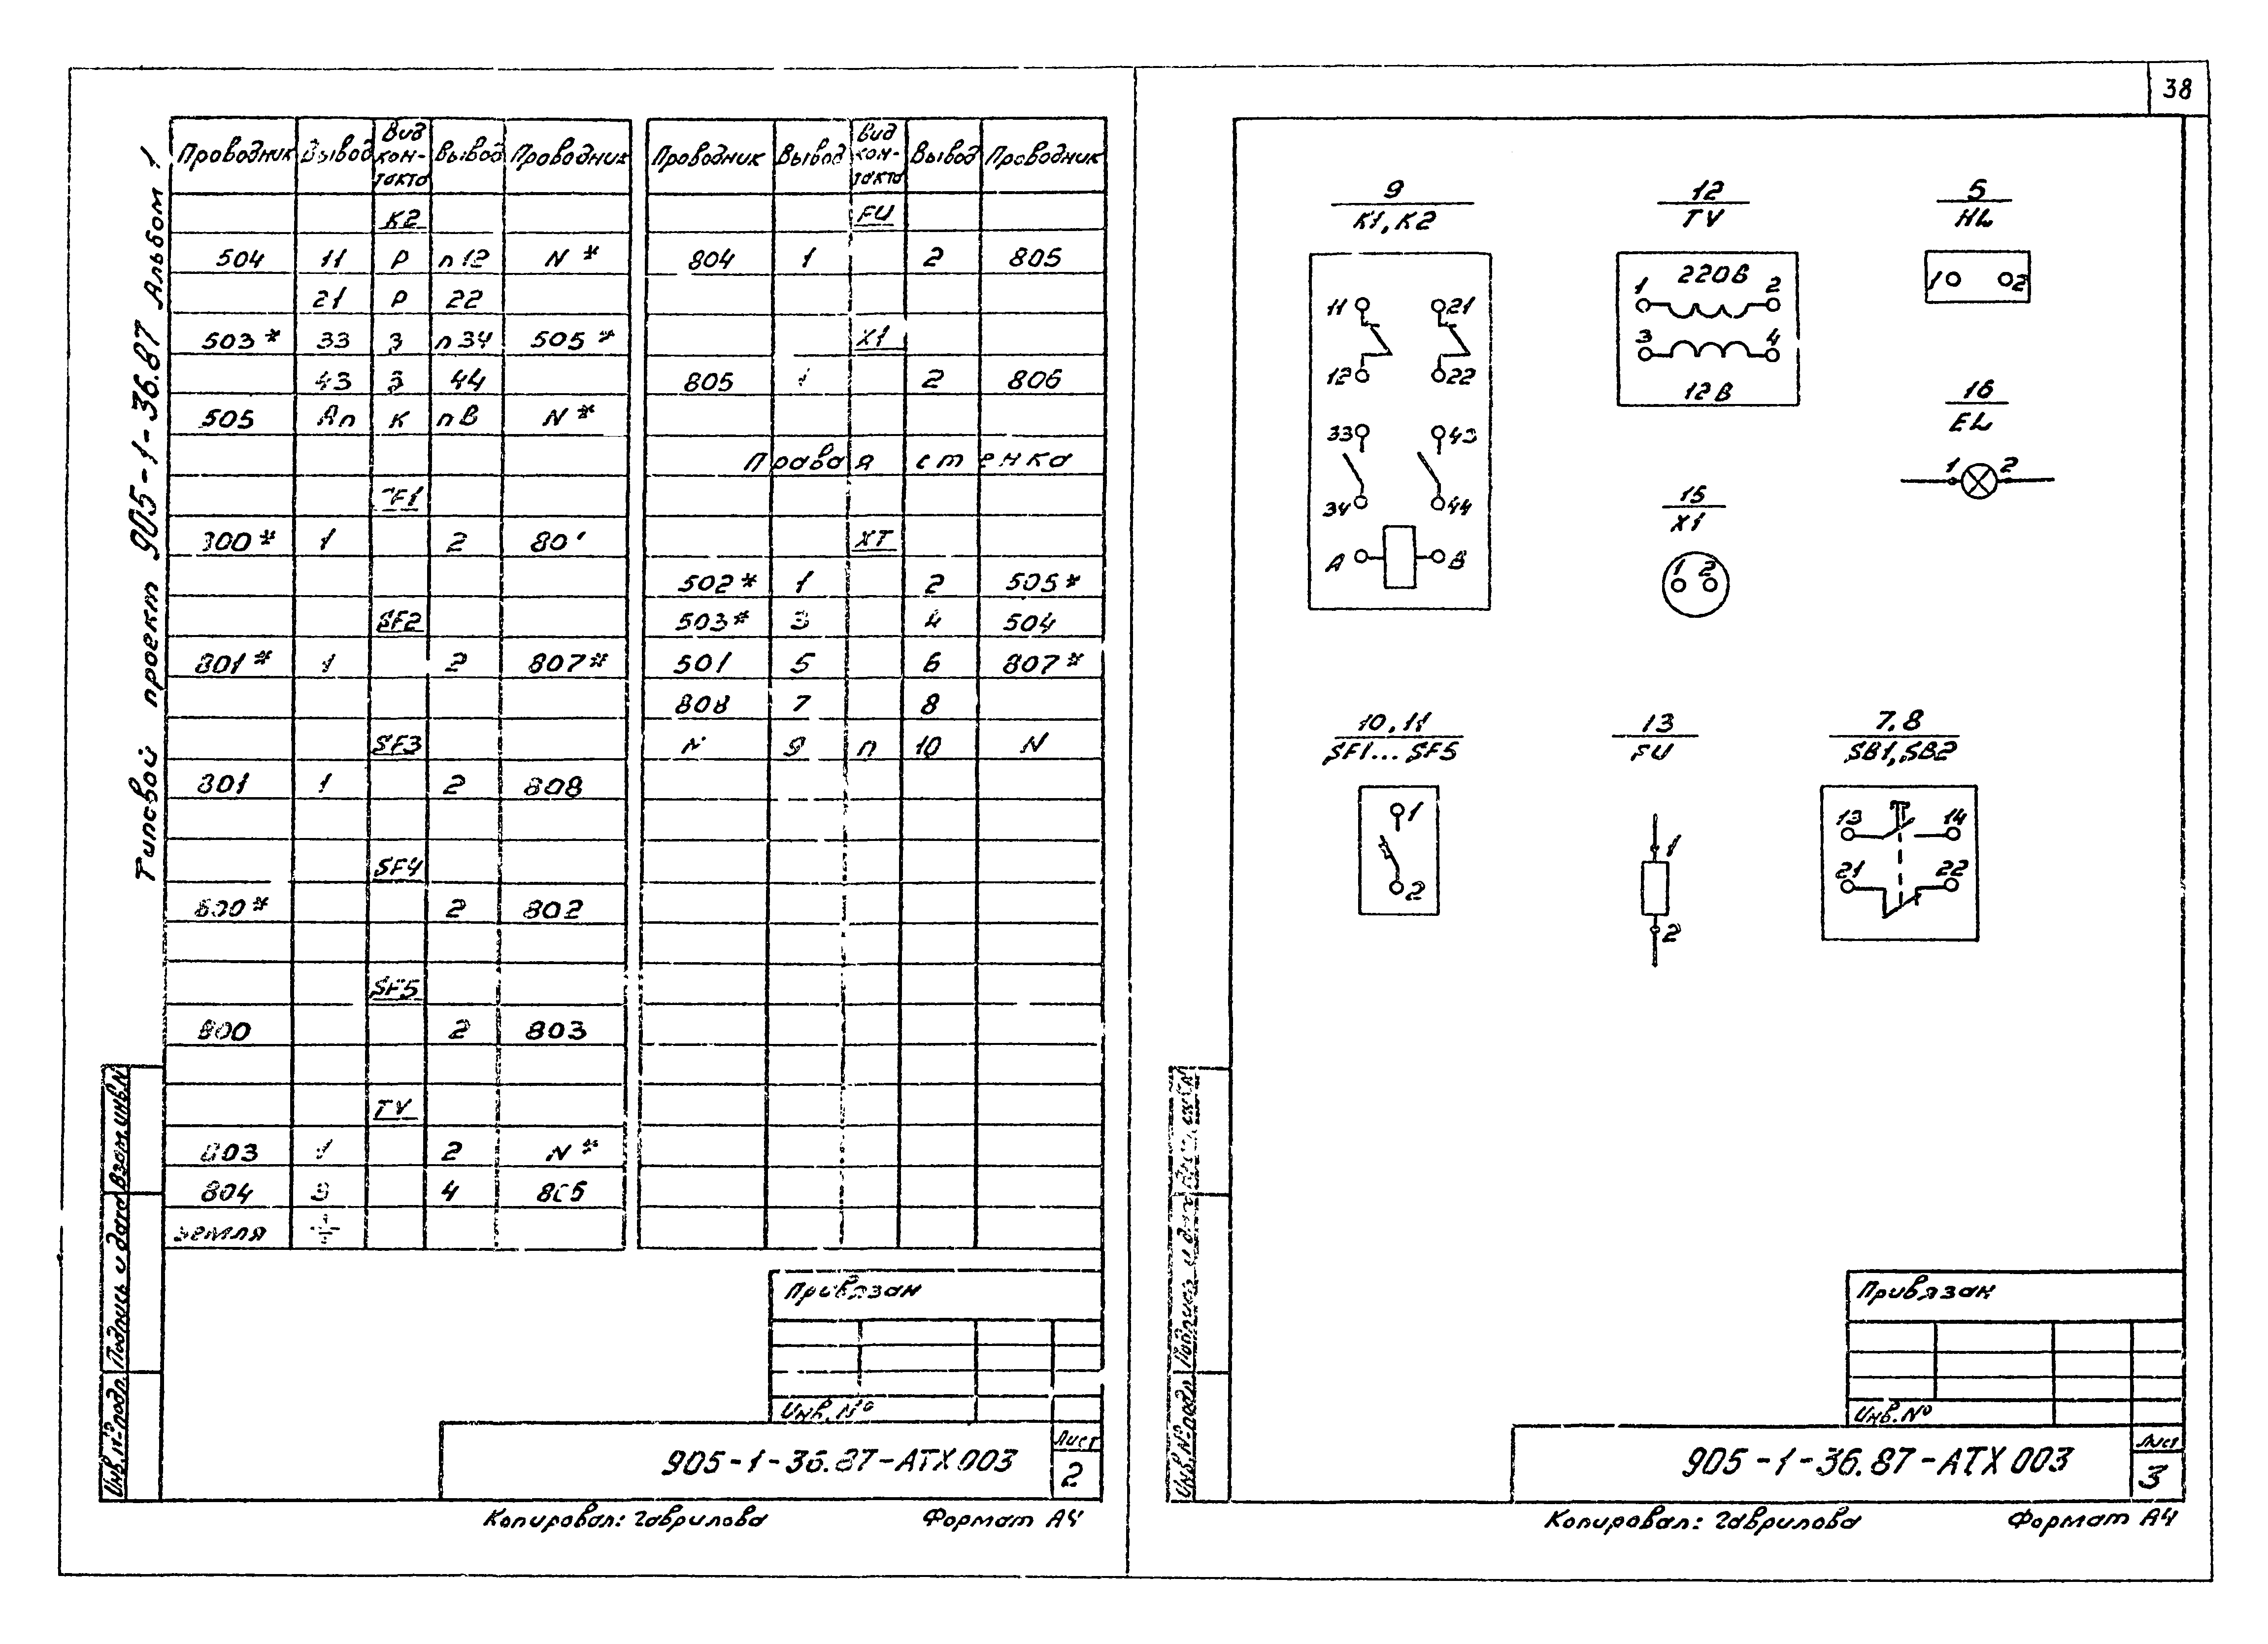 38
Типовой проект 905-1-36.87 Альбом 1
Проводник Вывод Вид кон-такта Вывод Проводник
К2
504 11 Р п12 N*
21 Р 22
503* 33 З п34 505*
43 З 44
505 Ап К пВ N*
F1
300* 1 2 80
SF2
801* 1 2 807*
SF3
801 1 2 808
SF4
800* 2 802
SF5
800 2 803
TV
803 1 2 N*
804 3 4 805
земля
Проводник Вывод Вид кон-такта Вывод Проводник
FU
804 1 2 805
X1
805 1 2 806
Правая стенка
XT
502* 1 2 505*
503* 3 4 504
501 5 6 807*
808 7 8
N 9 п 10 N
Взам. инв. N
Подпись и дата
Инв. № подл.
Привязан
Инв. №
905-1-36.87-АТХ003
Лист
2
Копировал: Гаврилова Формат А4
9
К1, К2
11 21
12 22
33 43
34 44
А В
12
TV
220В
1 2
3 4
12В
5
HL
1 2
16
EL
1 2
15
X1
1 2
10, 11
SF1...SF5
1
2
13
FU
1
2
7, 8
SB1, SB2
13 14
21 22
Подпись и дата
Инв. № подл.
Привязан
Инв. №
905-1-36.87-АТХ003
Лист
3
Копировал: Гаврилова Формат А4